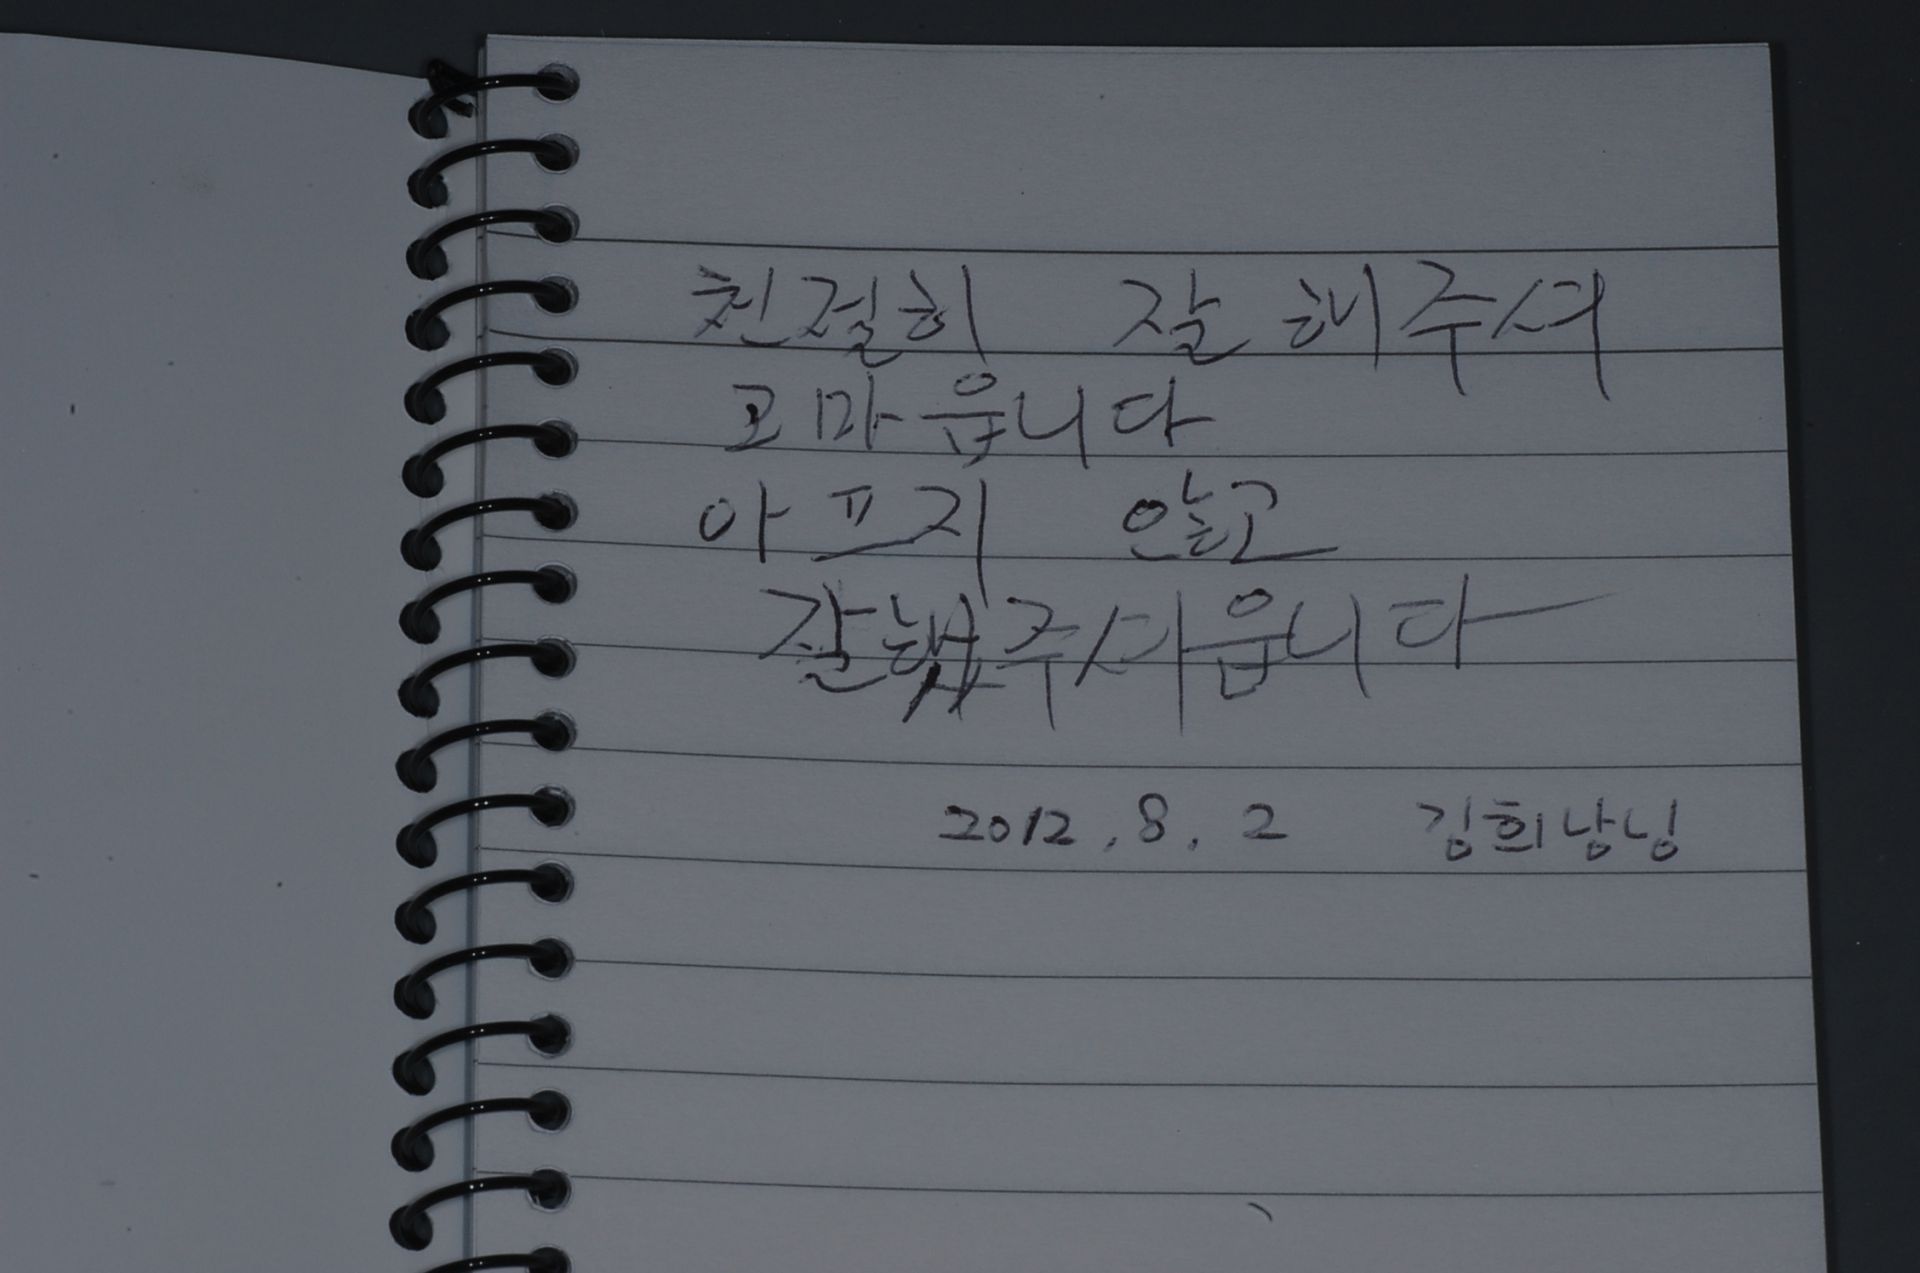 친절히 잘 해주셔
고마웁니다
아프지 않고
잘했주셔웁니다
2012.8.2 김희남님